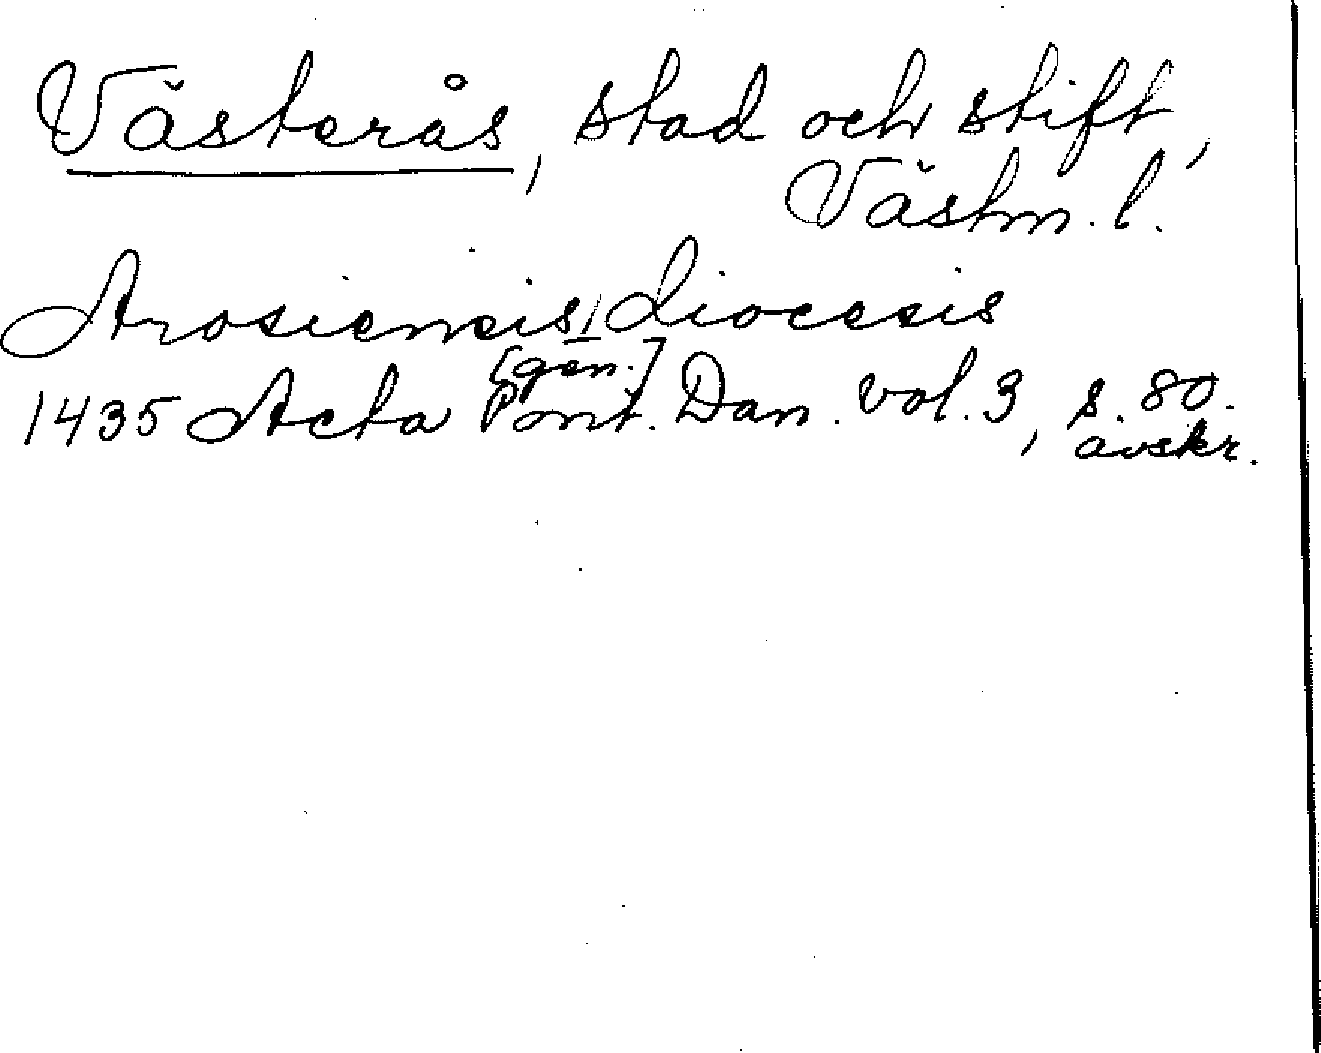 Västerås, stad och stift,
Västm. l.
Arosiensis/diocesis
[gen.]
1435 Acta Pont. Dan. vol. 3, s. 80.
avskr.